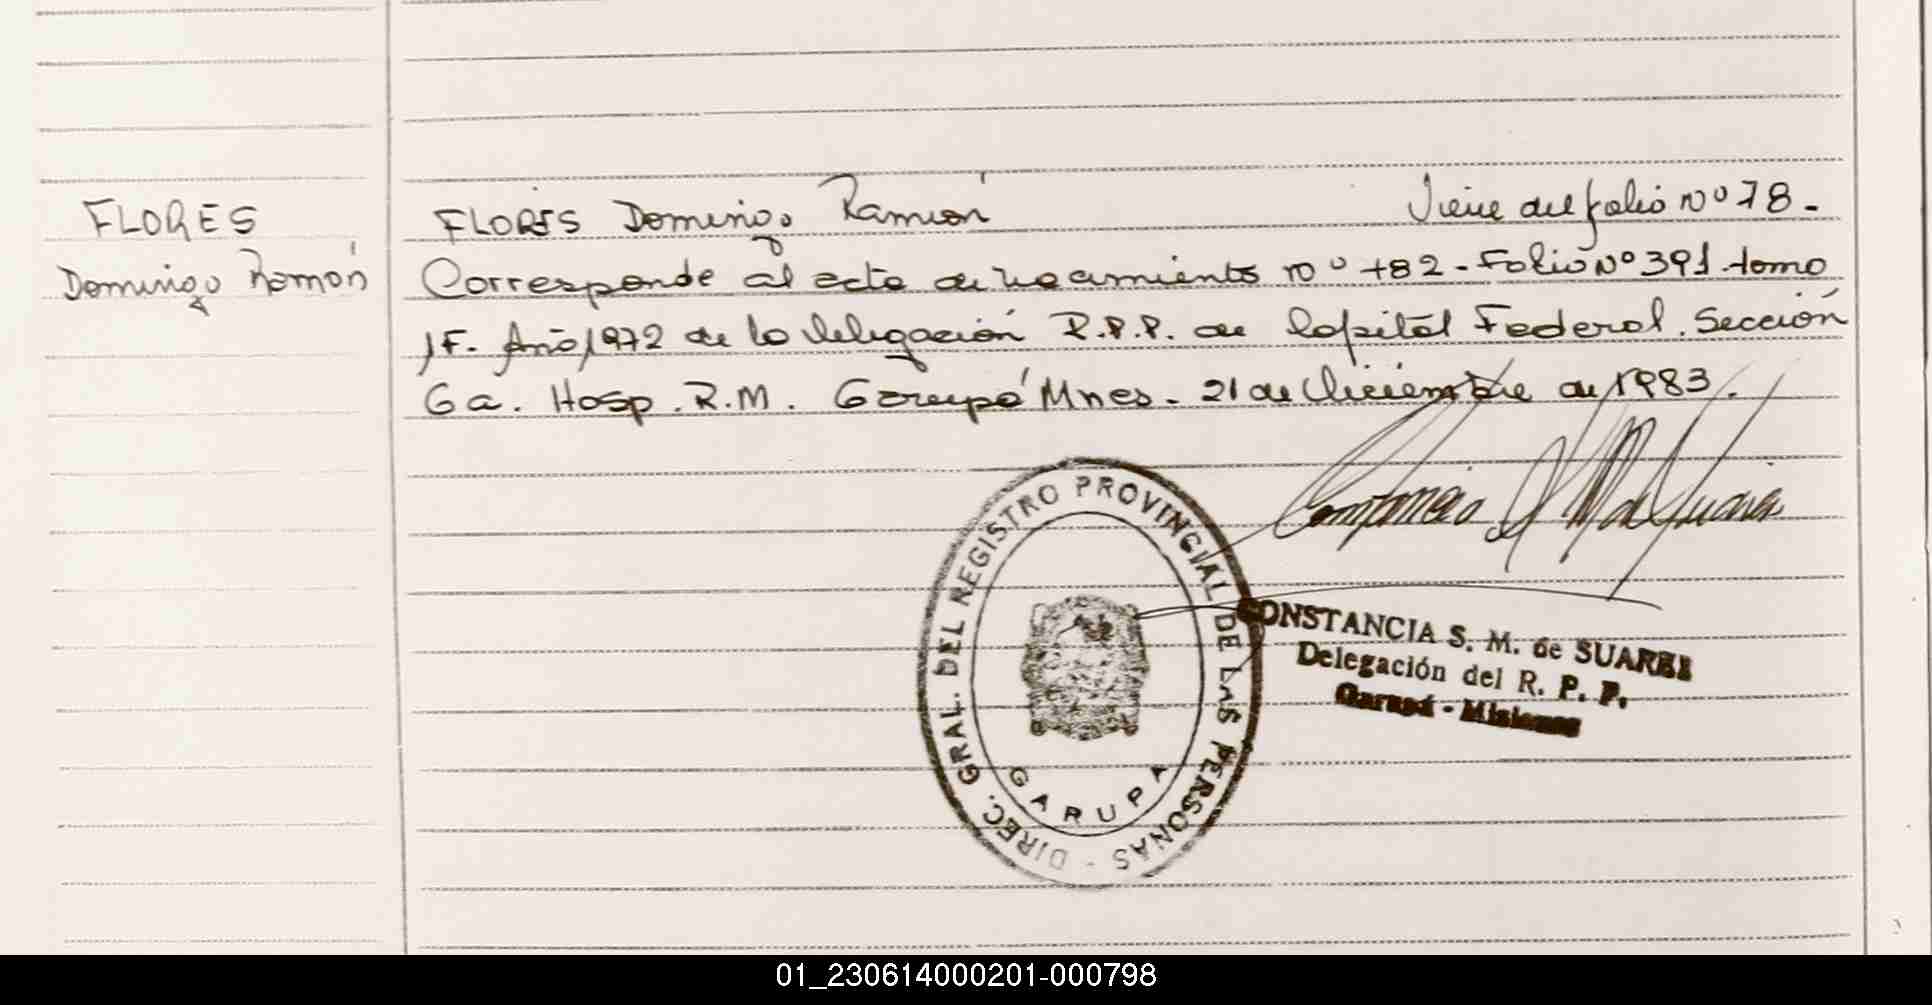 FLORES
Domingo Ramón
FLORES Domingo Ramón Viene del folio nº 78.-
Corresponde al acta de nacimiento nº 782 - Folio Nº 391 tomo
1F. Año 1972 de la delegación R.P.P. de Capital Federal. Sección
6a. Hosp. R.M. Garupá Mnes. 21 de diciembre de 1983.
DIREC. GRAL. DEL REGISTRO PROVINCIAL DE LAS PERSONAS -
GARUPA
CONSTANCIA S. M. de SUAREZ
Delegación del R. P. P.
Garupá - Misiones
01_230614000201-000798